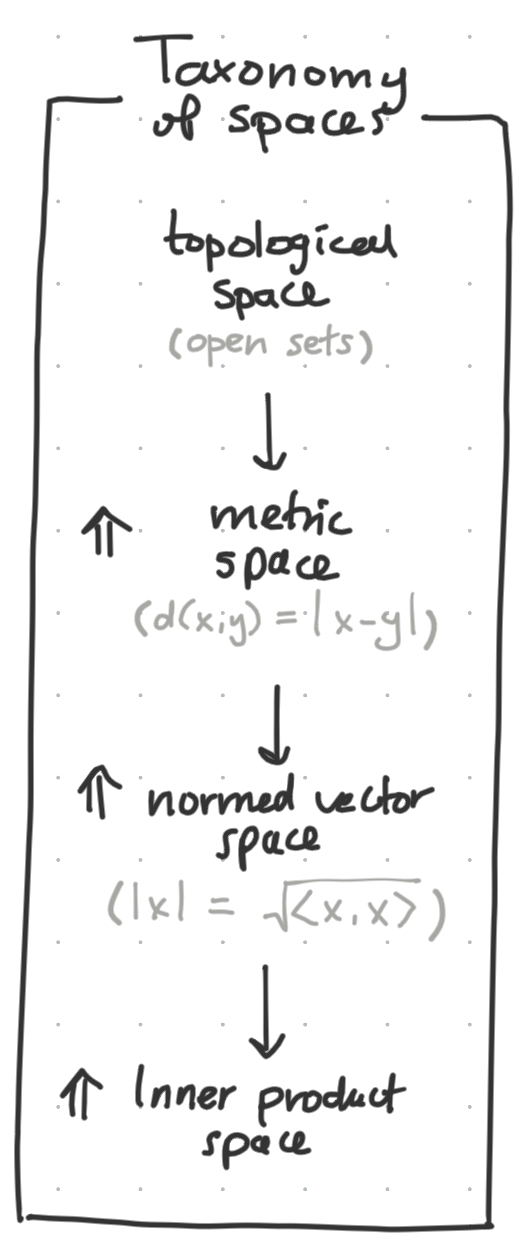 Taxonomy
of spaces
topological
space
(open sets)
↓
⇑ metric
space
(d(x,y) = |x-y|)
↓
⇑ normed vector
space
(|x| = √<x,x>)
↓
⇑ Inner product
space